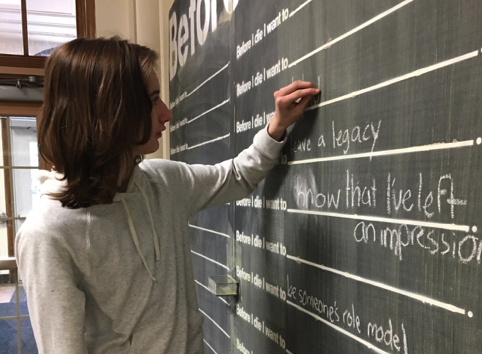 Befor
Before I die I want to
Before I die I want to
Before I die I want to
a legacy
I die I want to know that I've left
an impression
Before I die I want to
Before I die I want to be someone's role model
Before I die I want to